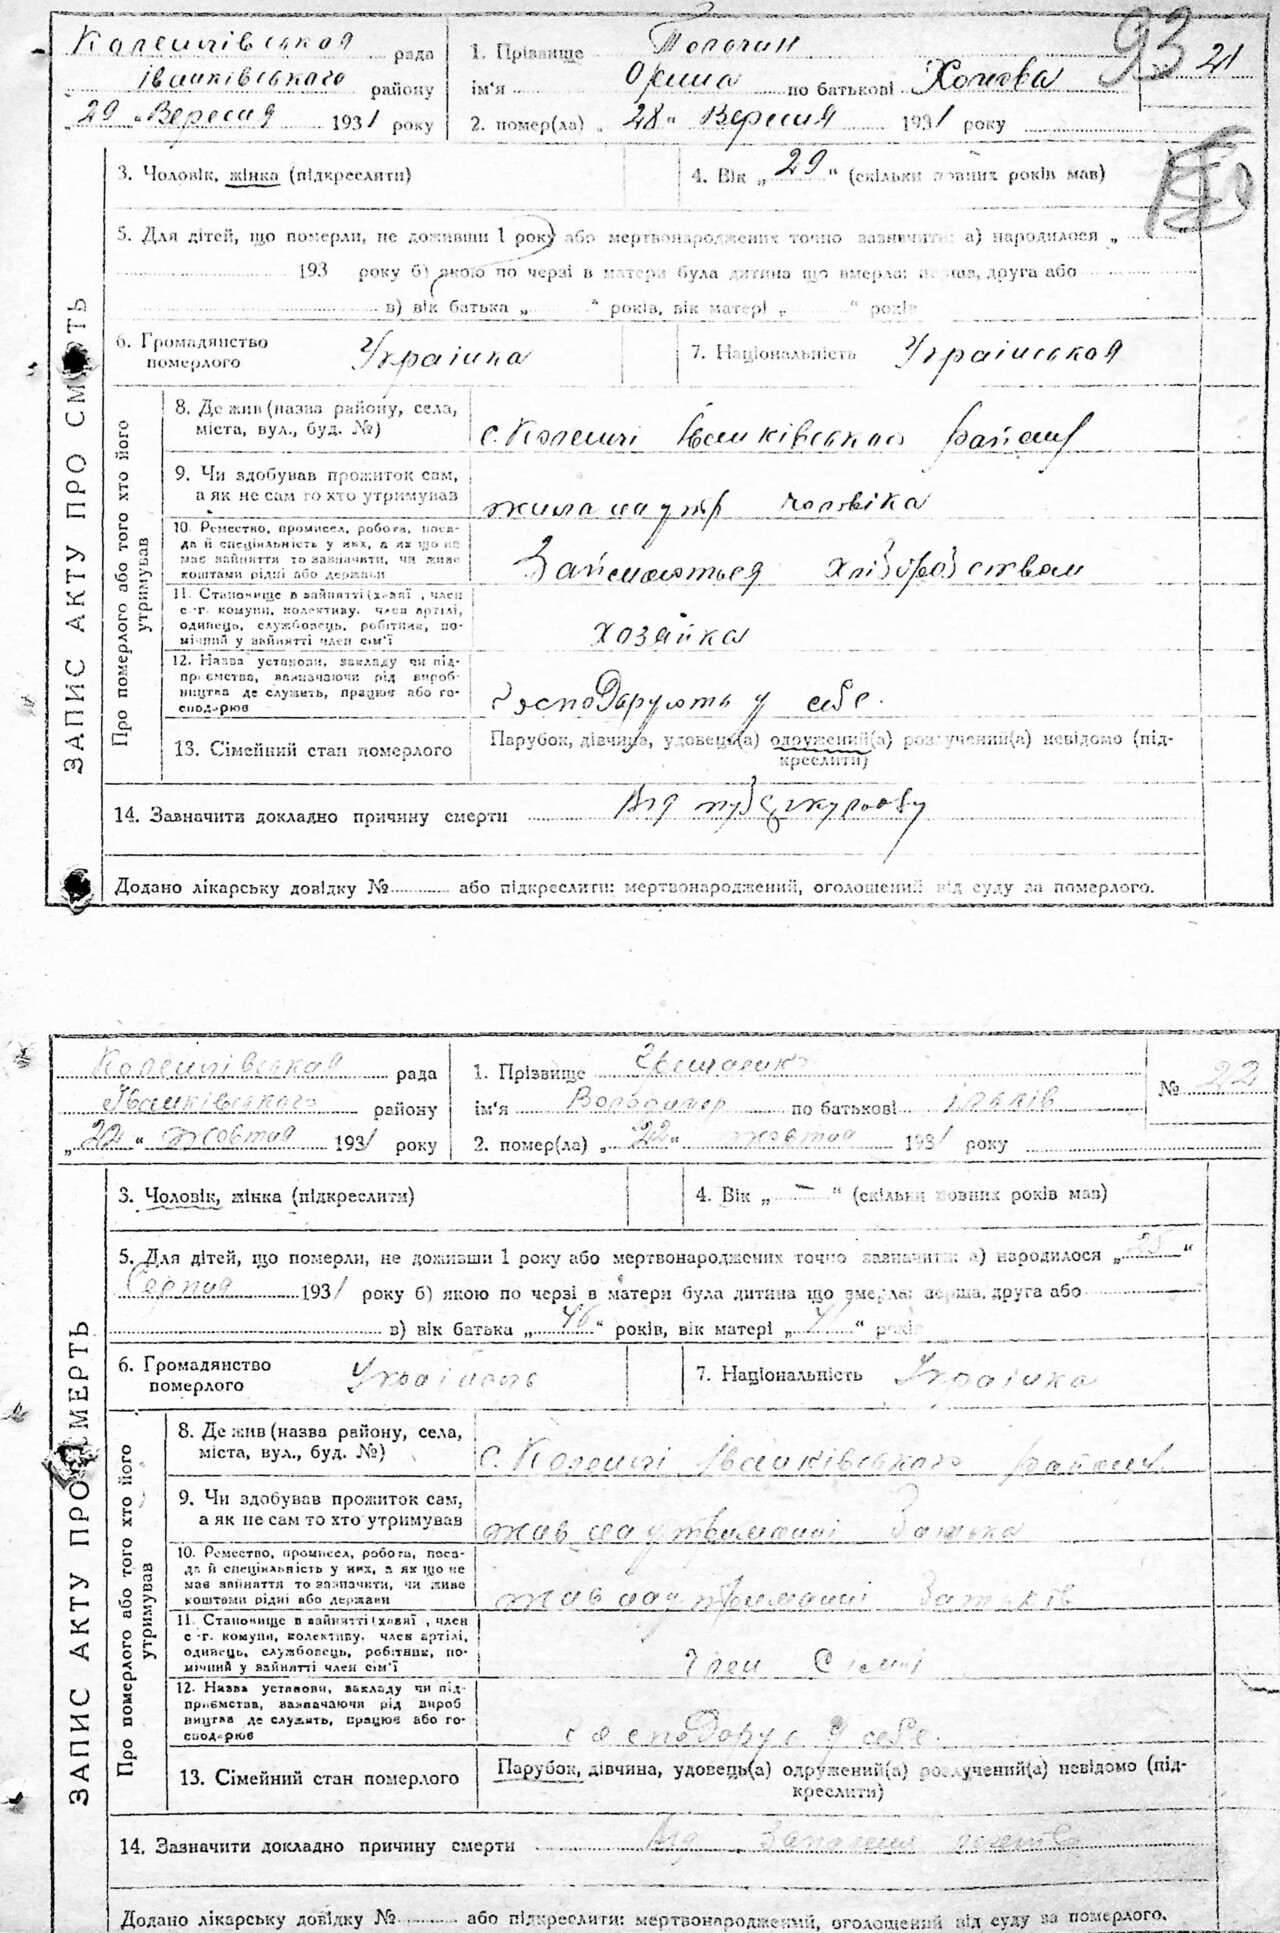 93
Коленцівська рада
Іванківського району
„29" Вересня 1931 року
1. Прізвище
ім'я Орина по батькові Хомова
2. помер(ла) „28" Вересня 1931 року
21
3. Чоловік, жінка (підкреслити)
4. Вік „29" (скільки повних років мав)
5. Для дітей, що померли, не доживши 1 року або мертвонароджених точно зазначити: а) народилося „
193 року б) якою по черзі в матери була дитина що вмерла: перша, друга або
в) вік батька „ " років, вік матері „ " років
ЗАПИС АКТУ ПРО СМЕРТЬ
6. Громадянство
померлого
Українка
7. Національність Українськоя
Про померлого або того хто його
утримував
8. Де жив (назва району, села,
міста, вул., буд. №)
с. Коленці Іванківського району
9. Чи здобував прожиток сам,
а як не сам то хто утримував
жила на утр чоловіка
10. Ремество, промисел, робота, поса-
да й спеціяльність у них, а як що не
має зайняття то зазначити, чи живе
коштами рідні або держави
Займаються хліборобством
11. Становище в зайнятті (хазяї , член
с.-г. комуни, колективу, член артілі,
одинець, службовець, робітник, по-
мічний у зайнятті член сім'ї
хозяйка
12. Назва установи, закладу чи під-
приємства, вазначаючи рід вироб-
ництва де служить, працює або го-
сподарює
господарують у себе.
13. Сімейний стан померлого
Парубок, дівчина, удовець(а) одружений(а) розлучений(а) невідомо (під-
креслити)
14. Зазначити докладно причину смерти Від туберкульозу
Додано лікарську довідку № або підкреслити: мертвонароджений, оголошений від суду за померлого.
Коленцівська рада
Іванківського району
„22" жовтня 1931 року
1. Прізвище
ім'я Володимер по батькові ільків
2. помер(ла) „22" жовтня 1931 року
№ 22
3. Чоловік, жінка (підкреслити)
4. Вік „ – " (скільки повних років мав)
5. Для дітей, що померли, не доживши 1 року або мертвонароджених точно зазначити: а) народилося „25"
Серпня 1931 року б) якою по черзі в матери була дитина що вмерла: перша, друга або
в) вік батька „46" років, вік матері „ " років
ЗАПИС АКТУ ПРО СМЕРТЬ
6. Громадянство
померлого
7. Національність Українка
Про померлого або того хто його
утримував
8. Де жив (назва району, села,
міста, вул., буд. №)
с. Коленці Іванківського району
9. Чи здобував прожиток сам,
а як не сам то хто утримував
жив на утриманні батька
10. Ремество, промисел, робота, поса-
да й спеціяльність у них, а як що не
має зайняття то зазначити, чи живе
коштами рідні або держави
жив на утриманні батьків
11. Становище в зайнятті (хазяї , член
с.-г. комуни, колективу, член артілі,
одинець, службовець, робітник, по-
мічний у зайнятті член сім'ї
член сімї
12. Назва установи, закладу чи під-
приємства, вазначаючи рід вироб
ництва де служить, працює або го-
сподарює
господорує у себе.
13. Сімейний стан померлого
Парубок, дівчина, удовець(а) одружений(а) розлучений(а) невідомо (під-
креслити)
14. Зазначити докладно причину смерти Від Запалення легенів
Додано лікарську довідку № або підкреслити: мертвонароджений, оголошений від суду за померлого.